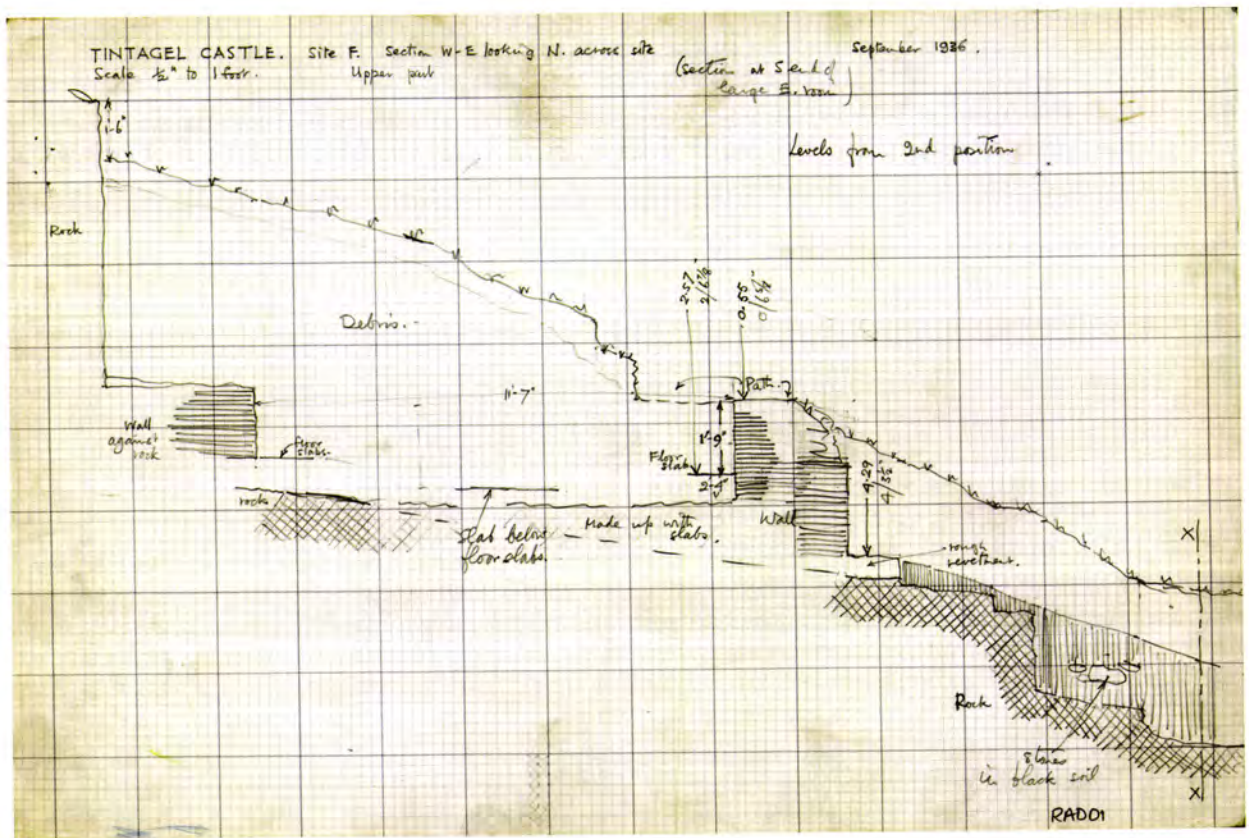 TINTAGEL CASTLE. Site F. Section W-E looking N. across site
September 1936.
Scale ½" to 1 foot.
Upper part
(section at S end of
large E. room)
1'-6"
Levels from 2nd position
Rock
Debris.
2.57
2/6⅞"
0.55
0/6⅝"
11'-7"
Path
Wall
against
rock
floor
slabs.
1'-9"
Floor
slab
2'-4"
4.29
4/3½"
rock
Slab below
floor slabs.
Made up with
slabs.
Wall
rough
revetment.
X
Rock
stones
in black soil
X
RAD01